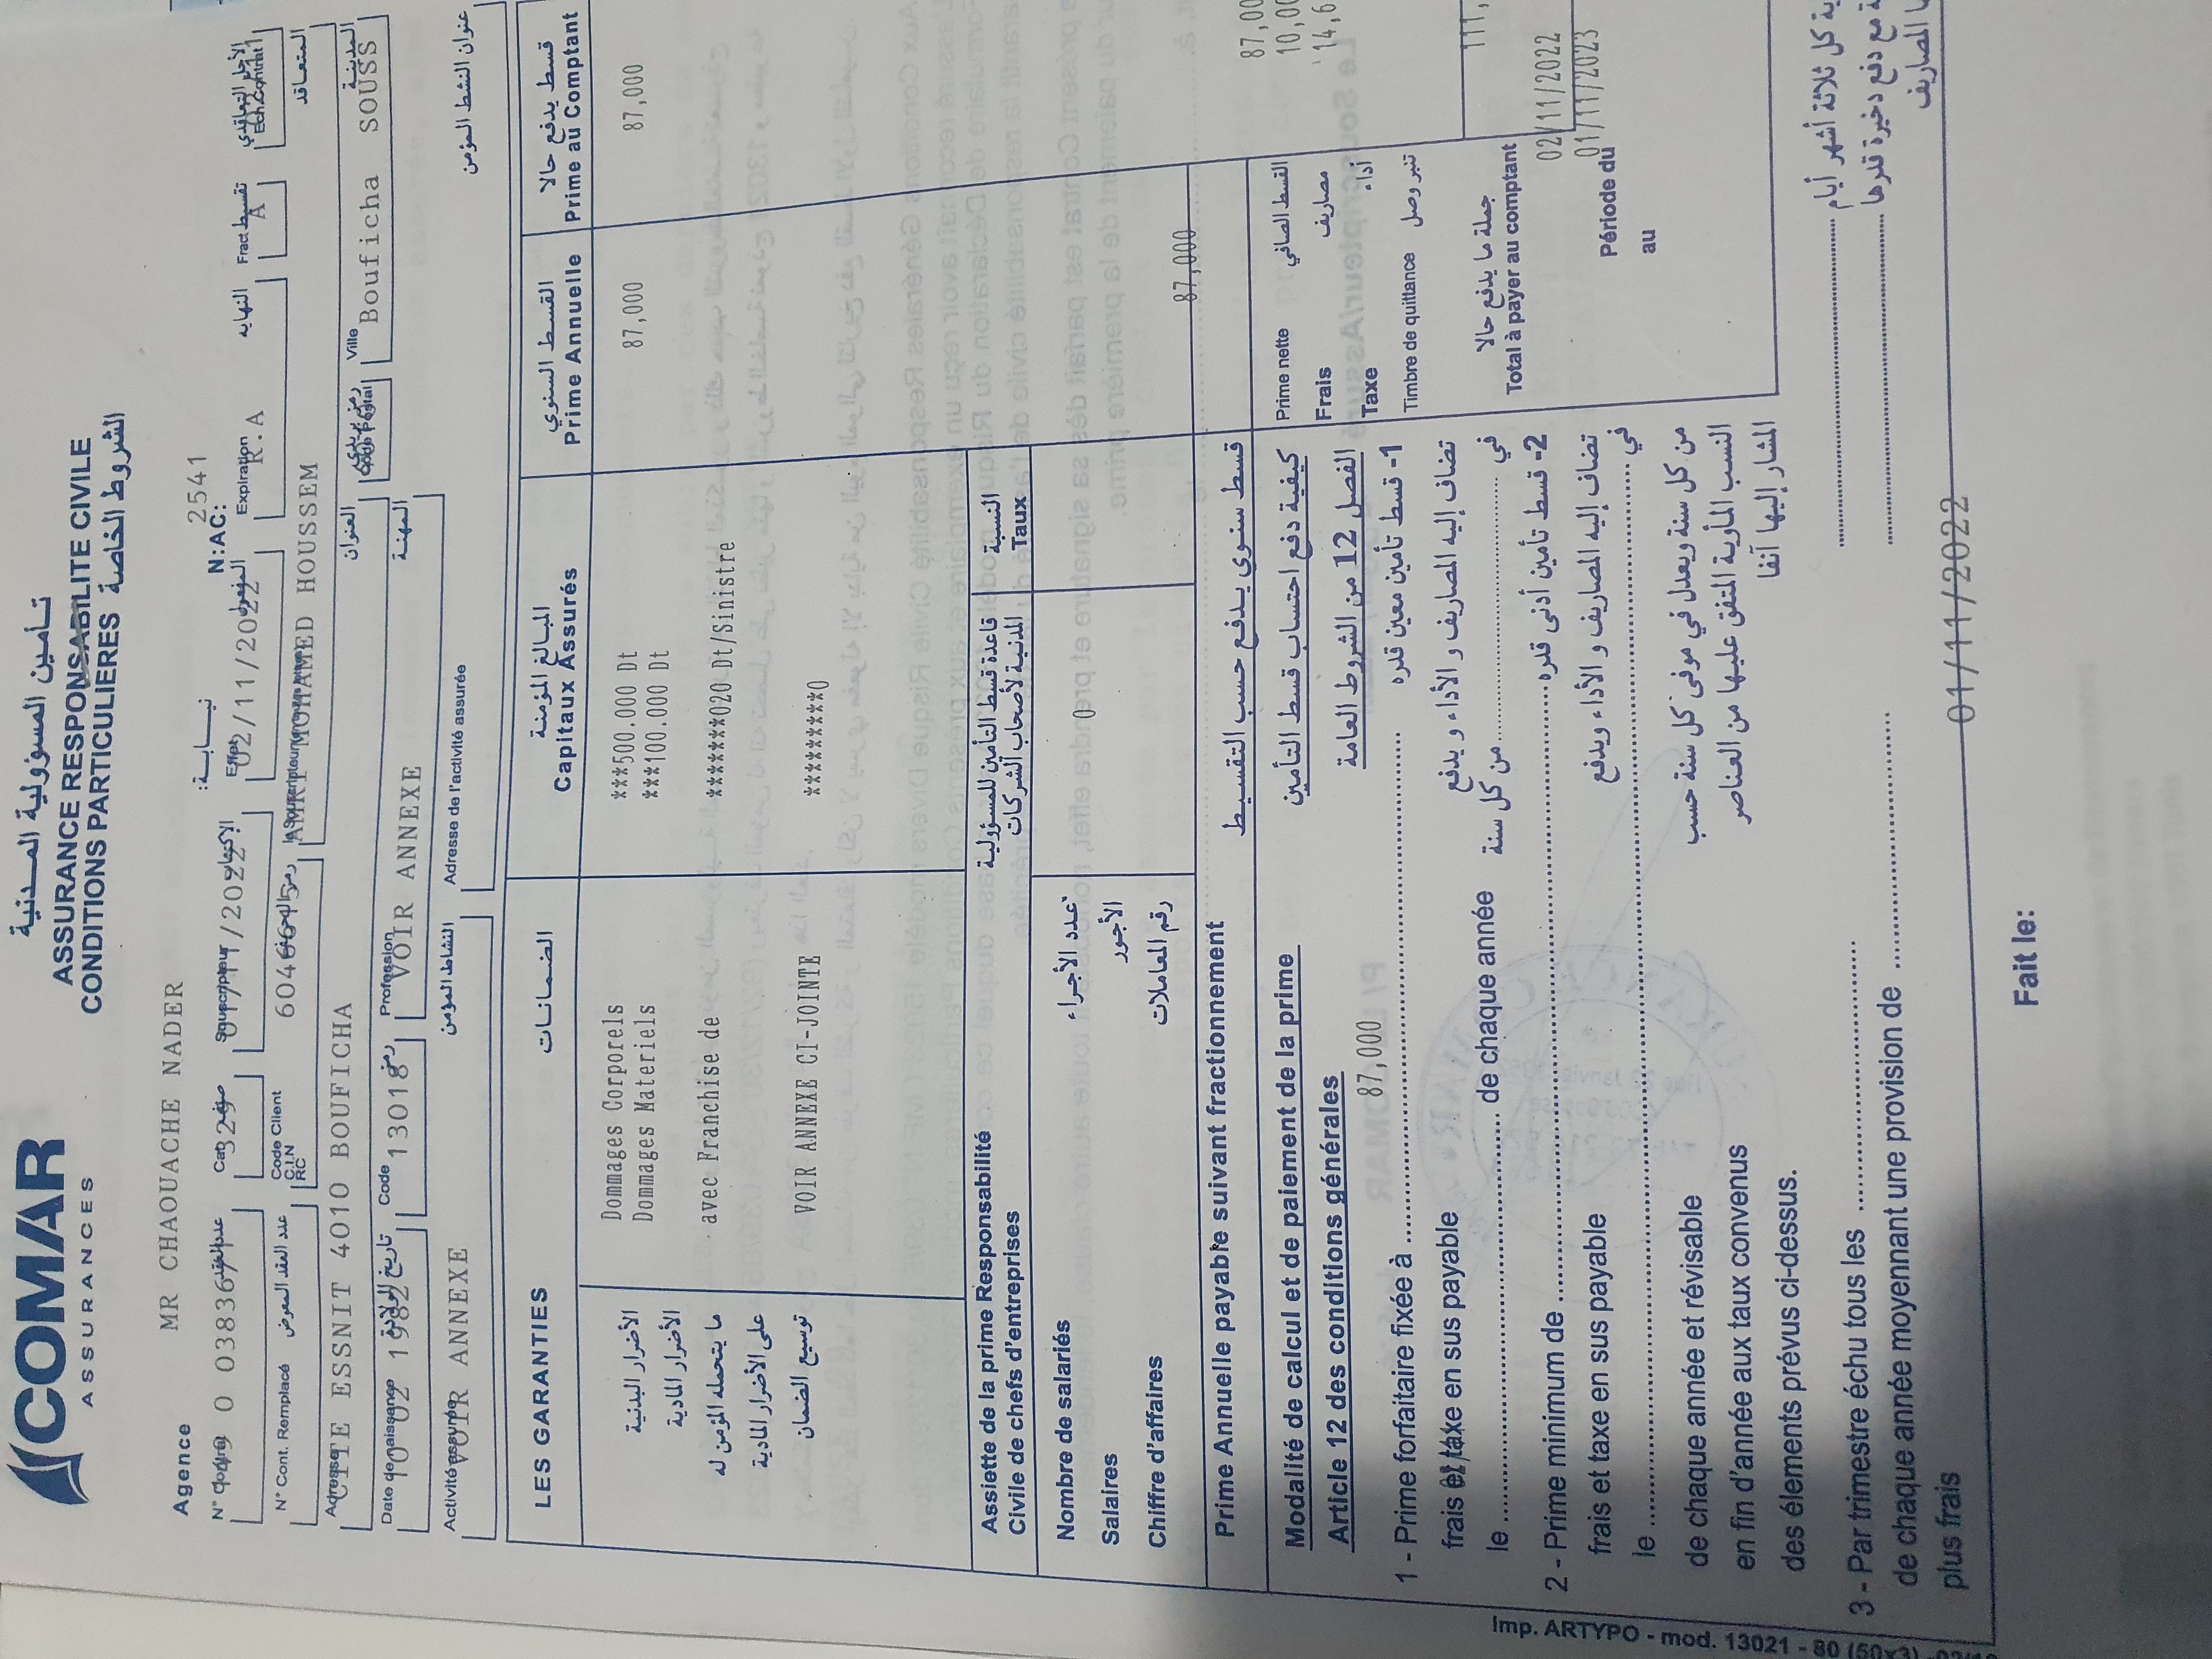 COMAR
ASSURANCES
تأمين المسؤولية المدنية
ASSURANCE RESPONSABILITE CIVILE
CONDITIONS PARTICULIERES الشروط الخاصة
Agence MR CHAOUACHE NADER نيابة: N:AC: 2541
N° Cat Souscription Effet Expiration النهاية Fract تقسيط Ech.Contrat الأجل التعاقدي
02/11/2022 R.A A
N° Cont. Remplacé عدد العقد المعوض Code Client C.I.N RC المتعاقد
MOHAMED HOUSSEM
Adresse العنوان Ville المدينة
CITE ESSNIT 4010 BOUFICHA Bouficha SOUSS
Date de naissance تاريخ الولادة Code رمز Profession المهنة
10 02 1982 13018 VOIR ANNEXE
Activité assurée النشاط المؤمن Adresse de l'activité assurée عنوان النشاط المؤمن
VOIR ANNEXE
LES GARANTIES الضمانات المبالغ المؤمنة Capitaux Assurés القسط السنوي Prime Annuelle قسط يدفع حالا Prime au Comptant
الأضرار البدنية Dommages Corporels ***500.000 Dt 87,000 87,000
الأضرار المادية Dommages Materiels ***100.000 Dt
ما يتحمله المؤمن له avec Franchise de *******020 Dt/Sinistre
على الأضرار المادية
توسيع الضمان VOIR ANNEXE CI-JOINTE *********0
Assiette de la prime Responsabilité قاعدة قسط التأمين للمسؤولية النسبة
Civile de chefs d'entreprises المدنية لأصحاب الشركات Taux
Nombre de salariés عدد الأجراء 0
Salaires الأجور
Chiffre d'affaires رقم المعاملات 87,000
Prime Annuelle payable suivant fractionnement قسط سنوي يدفع حسب التقسيط
Modalité de calcul et de paiement de la prime كيفية دفع احتساب قسط التأمين
Article 12 des conditions générales الفصل 12 من الشروط العامة
1 - Prime forfaitaire fixée à 87,000 1- قسط تأمين معين قدره
frais et taxe en sus payable تضاف إليه المصاريف و الأداء و يدفع
le de chaque année من كل سنة في
2 - Prime minimum de 2- قسط تأمين أدنى قدره
frais et taxe en sus payable تضاف إليه المصاريف و الأداء ويدفع
le في
de chaque année et révisable من كل سنة ويعدل في موفى كل سنة حسب
en fin d'année aux taux convenus النسب المأوية المتفق عليها من العناصر
des élements prévus ci-dessus. المشار إليها آنفا
Prime nette القسط الصافي
Frais مصاريف
Taxe أداء
Timbre de quittance تنبر وصل
جملة ما يدفع حالا
Total à payer au comptant
Période du 02/11/2022
au 01/11/2023
3 - Par trimestre échu tous les كل ثلاثة أشهر أيام
de chaque année moyennant une provision de مع دفع دخيرة قدرها
plus frais المصاريف
Fait le: 01/11/2022
Imp. ARTYPO - mod. 13021 - 80